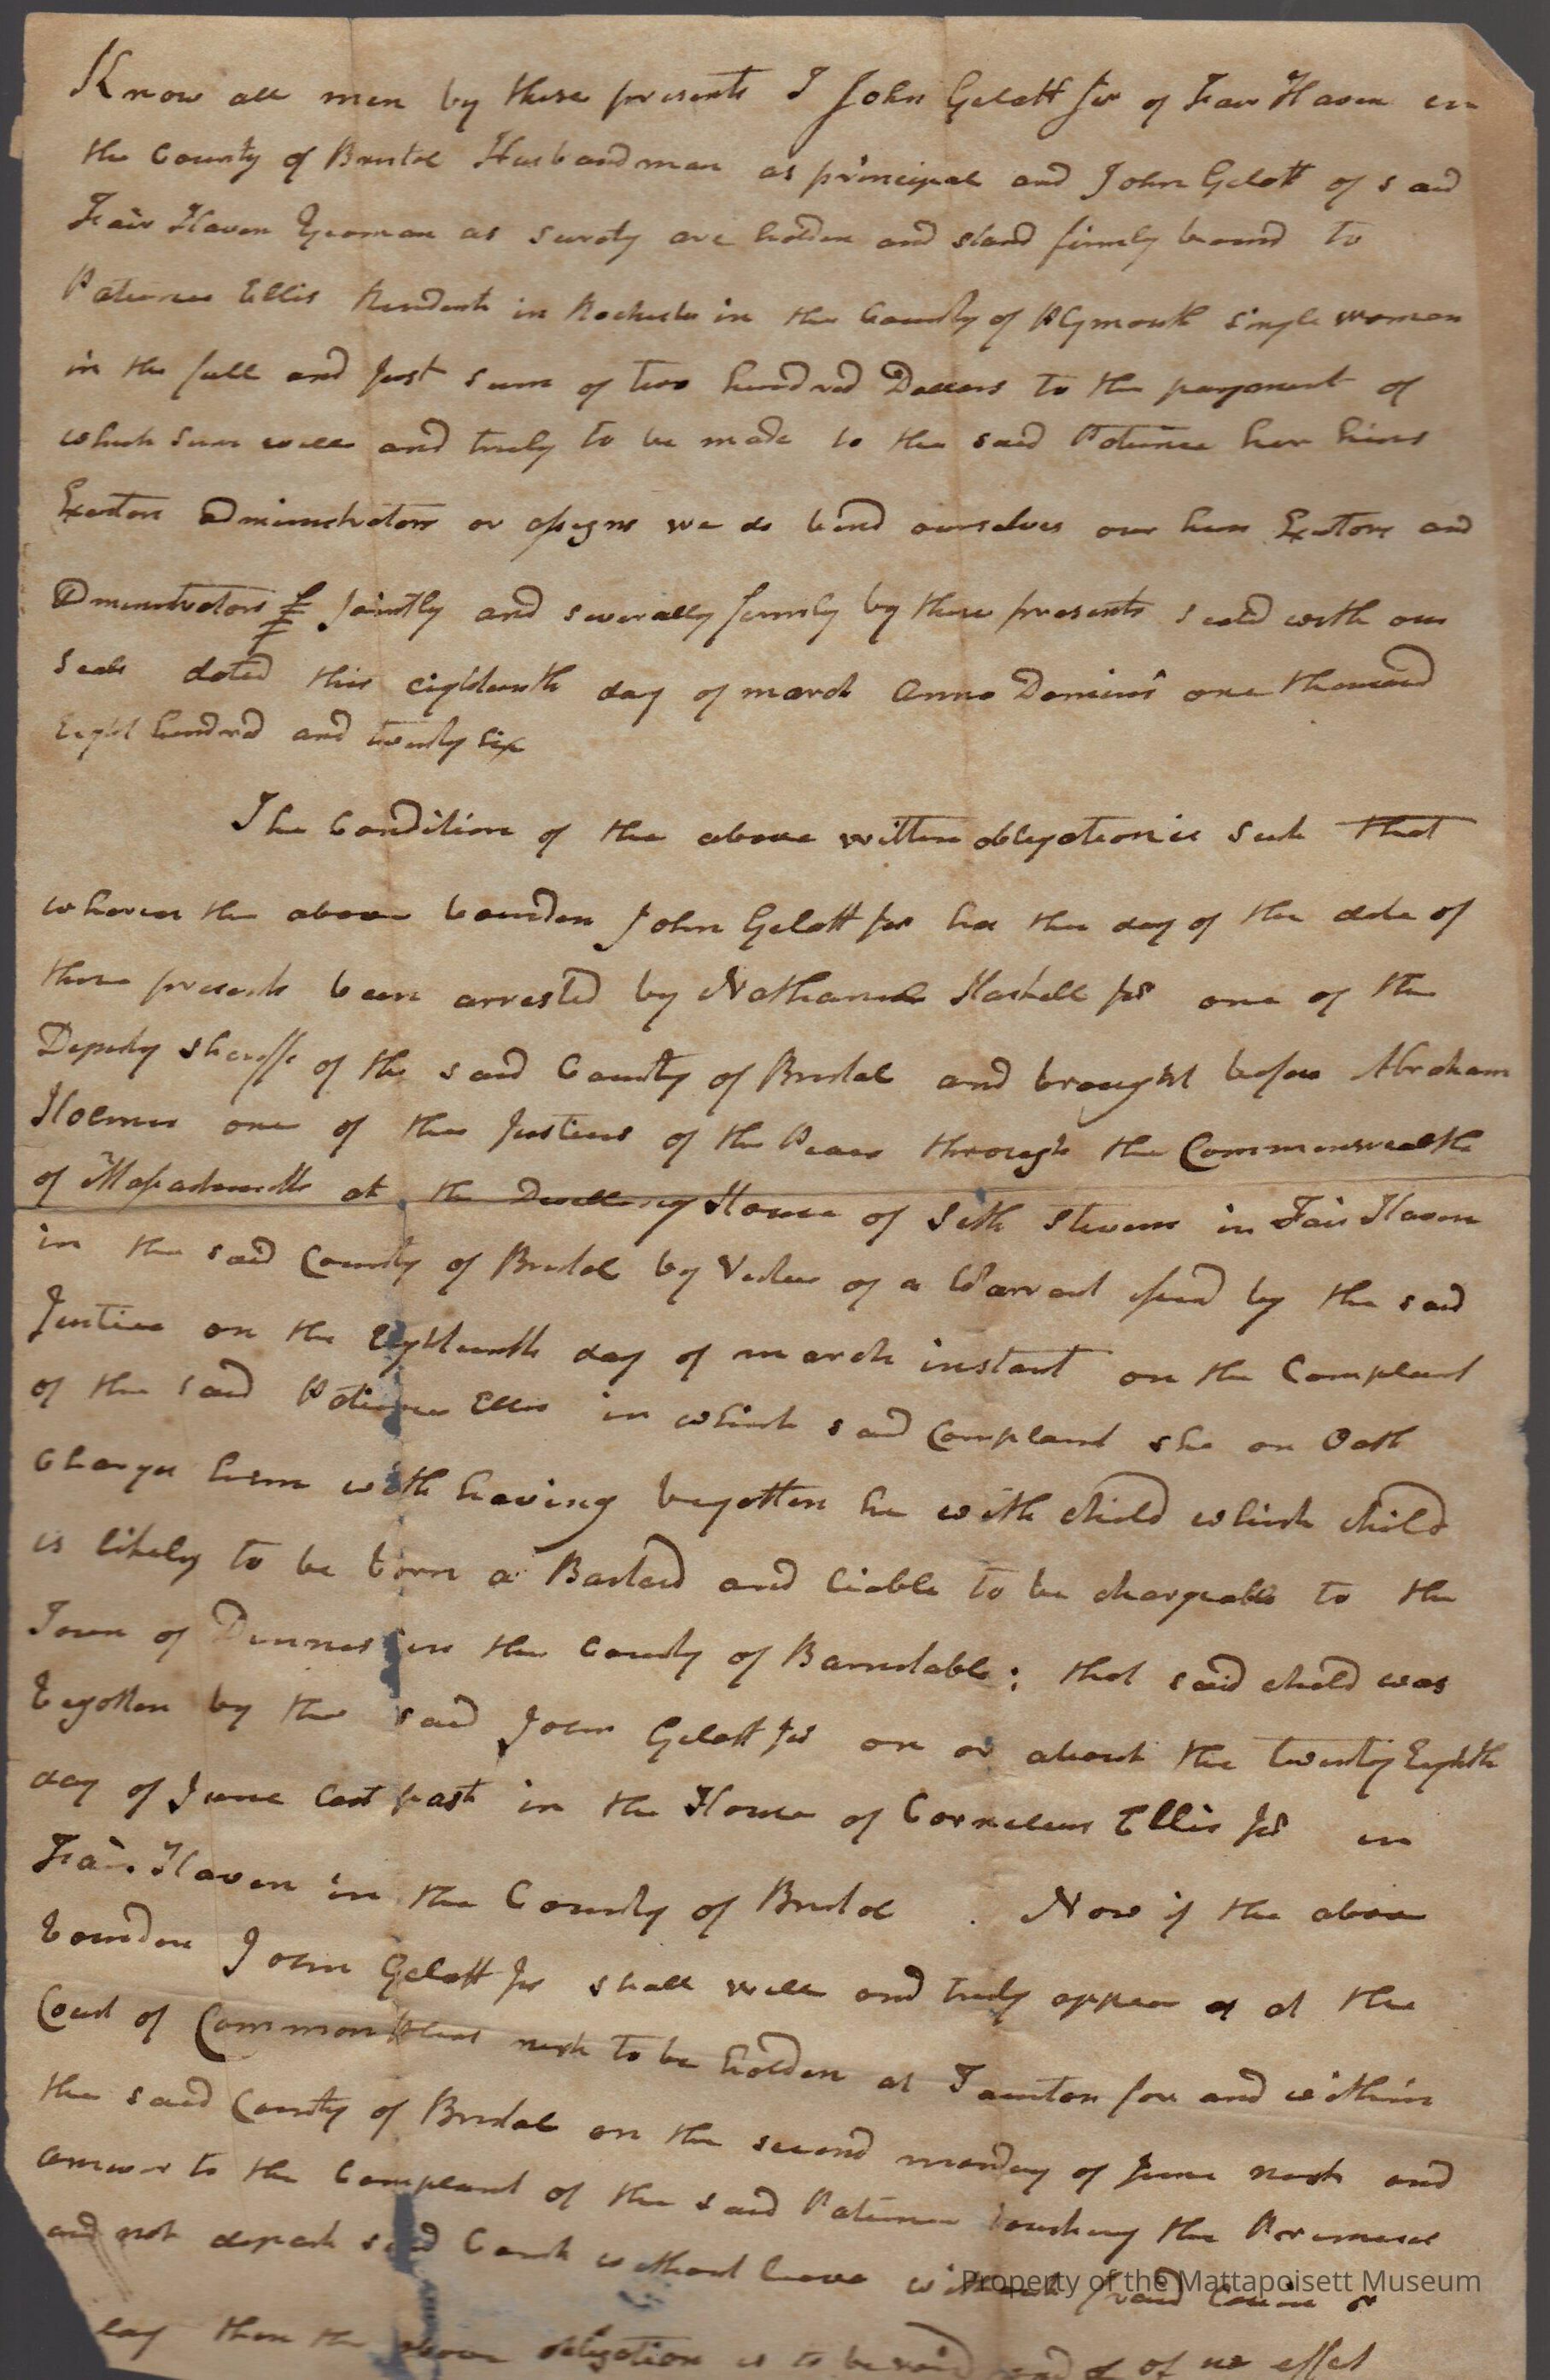 Know all men by these presents I John Gelatt Jur of Fair Haven in
the County of Bristol Husbandman as principal and John Gelatt of said
Fair Haven Yeoman as surety are holden and stand firmly bound to
Patience Ellis Resident in Rochester in the County of Plymouth single woman
in the full and just sum of two hundred Dollars to the payment of
which sum well and truly to be made to the said Patience her heirs
Exetors administrators or assigns we do bind ourselves our heirs Exetors and
Dministrators jointly and severally firmly by these presents sealed with our
seals dated this eighteenth day of march Anno Domini one thousand
Eight hundred and twenty six
The Condition of the above written obligation is such that
whereas the above bounden John Gelatt Jur has the day of the date of
these presents been arrested by Nathaniel Haskell Jur one of the
Deputy sheriffs of the said County of Bristol and brought before Abraham
Holmes one of the Justices of the Peace through the Commonwealth
of Massachusetts at the Dwelling House of Seth Stevens in Fair Haven
in the said County of Bristol by Virtue of a Warrant issued by the said
Justice on the Eighteenth day of march instant on the Complaint
of the said Patience Ellis in which said Complaint she on Oath
Charges him with having begotten he with child which child
is likely to be born a Bastard and liable to be chargeable to the
Town of Dennis in the County of Barnstable; that said child was
begotten by the said John Gelatt Jur on or about the twenty Eighth
day of June last past in the House of Cornelius Ellis Jur in
Fair Haven in the County of Bristol. Now if the above
bounden John Gelatt Jur shall well and truly appear at the
Court of Common Pleas next to be holden at Taunton for and within
the said County of Bristol on the second monday of June next and
answer to the Complaint of the said Patience touching the Premises
and not depart said Court without leave without fraud Couin or
lay then the above obligation is to be void and of no effect
Property of the Mattapoisett Museum